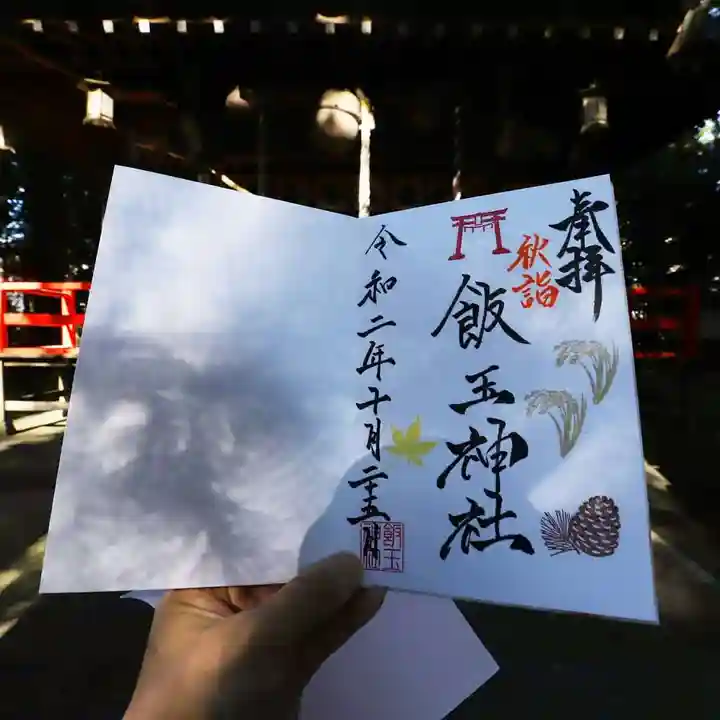 奉拝
秋詣
飯玉神社
令和二年十月二十五日
飯玉
神社